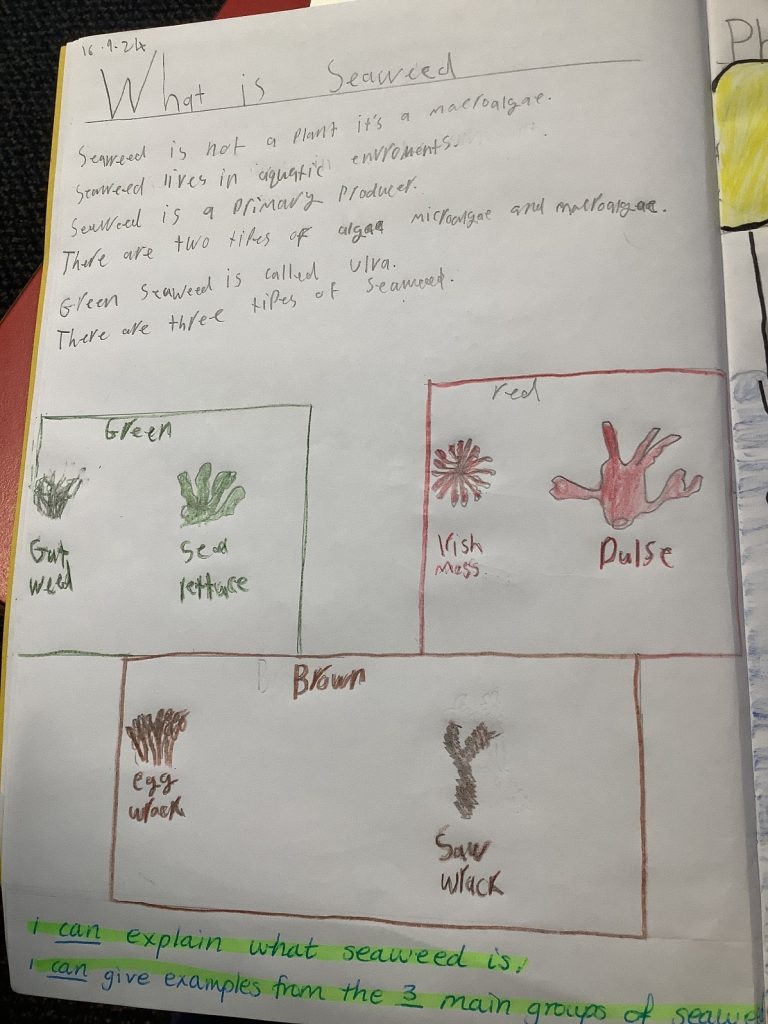 16.9.24
What is Seaweed
Seaweed is not a Plant it's a macroalgae.
Seaweed lives in aquatic enviroments.
Seaweed is a Primary Producer.
There are two tipes of algae microalgae and macroalgae.
Green Seaweed is called ulva.
There are three tipes of Seaweed.
Green
red
Gut
weed
Sea
lettuce
Irish
moss
Dulse
Brown
egg
wrack
Saw
wrack
i can explain what seaweed is.
i can give examples from the 3 main groups of